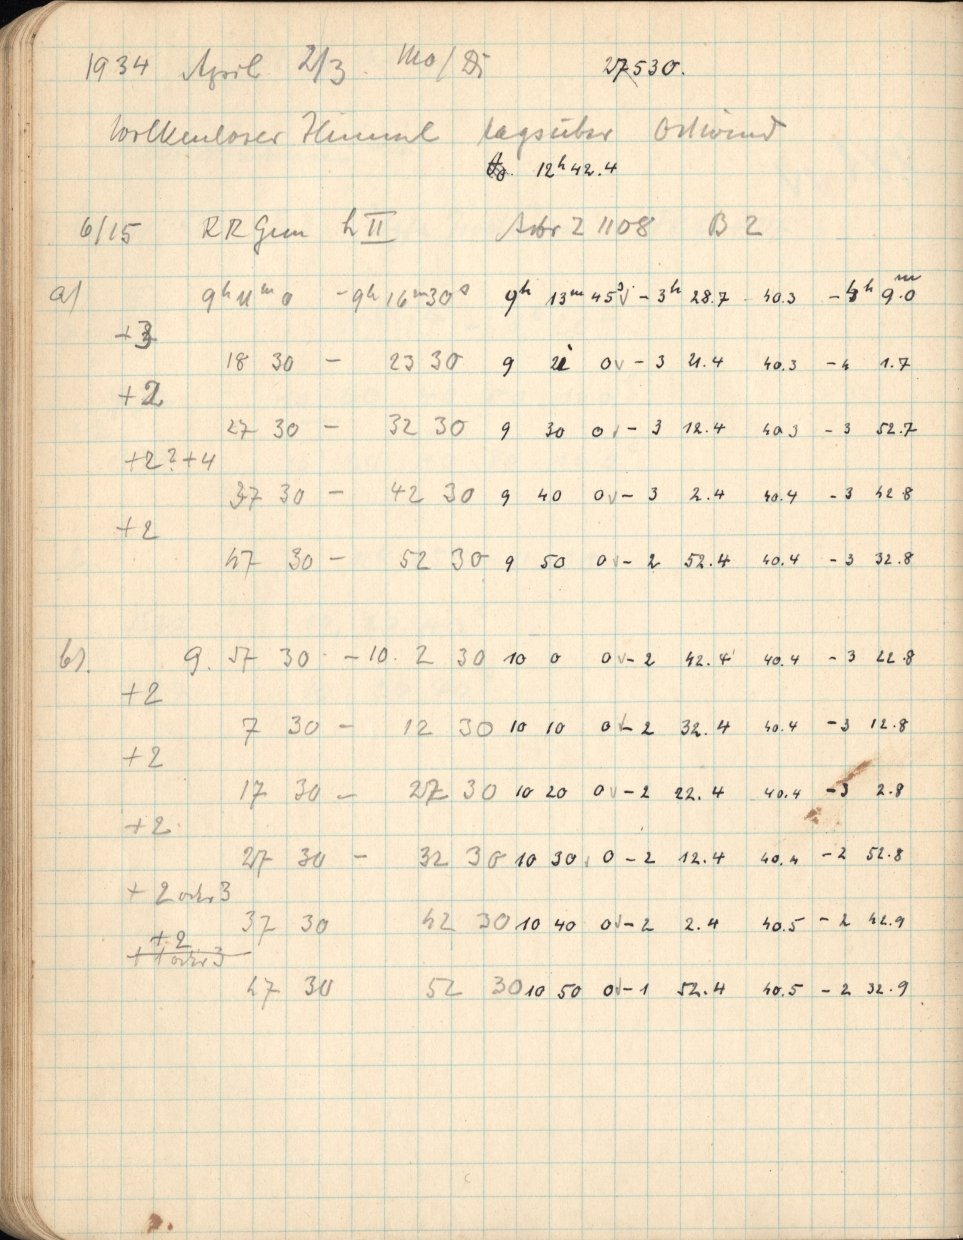 1934 April 2/3. Mo/Di 27530.
Wolkenloser Himmel tagsüber Ostwind
12ʰ42.4
6/15 RR Gem h II Astr Z 1108 B 2
a) 9ʰ 11ᵐ 0 - 9ʰ 16ᵐ30ˢ 9ʰ 13ᵐ 45ˢ√ - 3ʰ 28.7 40.3 - 4ʰ 9.0ᵐ
+3
18 30 - 23 30 9 21 0√ - 3 21.4 40.3 - 4 1.7
+2
27 30 - 32 30 9 30 0√ - 3 12.4 40.3 - 3 52.7
+2?+4
37 30 - 42 30 9 40 0√ - 3 2.4 40.4 - 3 42.8
+2
47 30 - 52 30 9 50 0√ - 2 52.4 40.4 - 3 32.8
b). 9. 57 30 - 10. 2 30 10 0 0√ - 2 42.4 40.4 - 3 22.8
+2
7 30 - 12 30 10 10 0√ - 2 32.4 40.4 - 3 12.8
+2
17 30 - 27 30 10 20 0√ - 2 22.4 40.4 - 3 2.8
+2
27 30 - 32 30 10 30√ 0 - 2 12.4 40.4 - 2 52.8
+ 2 oder 3
37 30 42 30 10 40 0√ - 2 2.4 40.5 - 2 42.9
+2
+1 oder 3
47 30 52 30 10 50 0√ - 1 52.4 40.5 - 2 32.9